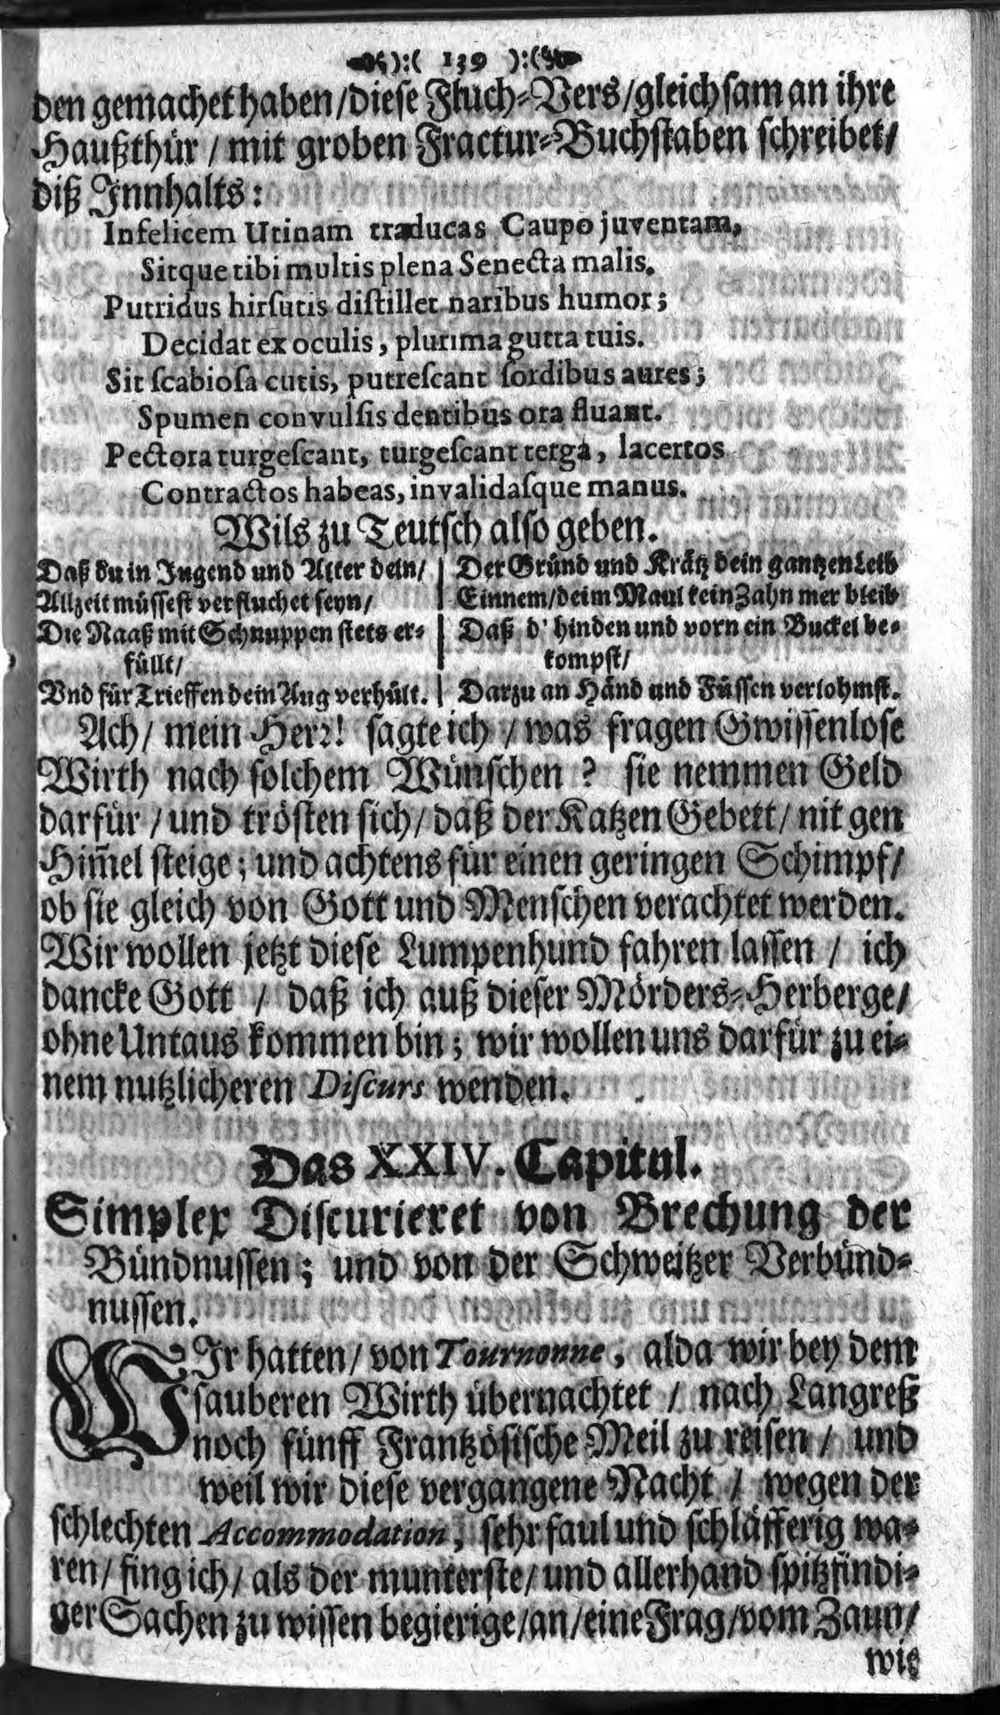 ):( 139 ):(
den gemachet haben/diese Fluch-Vers/gleichsam an ihre
Haußthür / mit groben Fractur-Buchstaben schreibet/
diß Innhalts:
Infelicem Utinam traducas Caupo juventam,
Sitque tibi multis plena Senecta malis.
Putridus hirsutis distillet naribus humor;
Decidat ex oculis, plurima gutta tuis.
Sit scabiosa cutis, putrescant sordibus aures;
Spumen convulsis dentibus ora fluant.
Pectora turgescant, turgescant terga, lacertos
Contractos habeas, invalidasque manus.
Wils zu Teutsch also geben.
Daß du in Jugend und Alter dein/
Allzeit müssest verfluchet seyn/
Die Naaß mit Schnuppen stets er-
füllt/
Vnd für Trieffen dein Aug verhült.
Der Gründ und Krätz dein gantzen Leib
Einnem/deim Maul kein Zahn mer bleib
Daß d' hinden und vorn ein Buckel be-
kompst/
Darzu an Händ und Füssen verlohmst.
Ach/ mein Herꝛ! sagte ich / was fragen Gwissenlose
Wirth nach solchem Wünschen ? sie nemmen Geld
darfür / und trösten sich/ daß der Katzen Gebett/ nit gen
Him̃el steige; und achtens für einen geringen Schimpf/
ob sie gleich von Gott und Menschen verachtet werden.
Wir wollen jetzt diese Lumpenhund fahren lassen / ich
dancke Gott / daß ich auß dieser Mörders-Herberge/
ohne Untaus kommen bin; wir wollen uns darfür zu ei-
nem nutzlicheren Discurs wenden.
Das XXIV. Capitul.
Simplex Discurieret von Brechung der
Bündnussen; und von der Schweitzer Verbünd-
nussen.
WIr hatten/ von Tournonne, alda wir bey dem
sauberen Wirth übernachtet / nach Langreß
noch fünff Frantzösische Meil zu reisen / und
weil wir diese vergangene Nacht / wegen der
schlechten Accommodation, sehr faul und schläfferig wa-
ren/ fing ich/ als der munterste/ und allerhand spitzfindi-
ger Sachen zu wissen begierige/an/eine Frag/vom Zaun/
wie